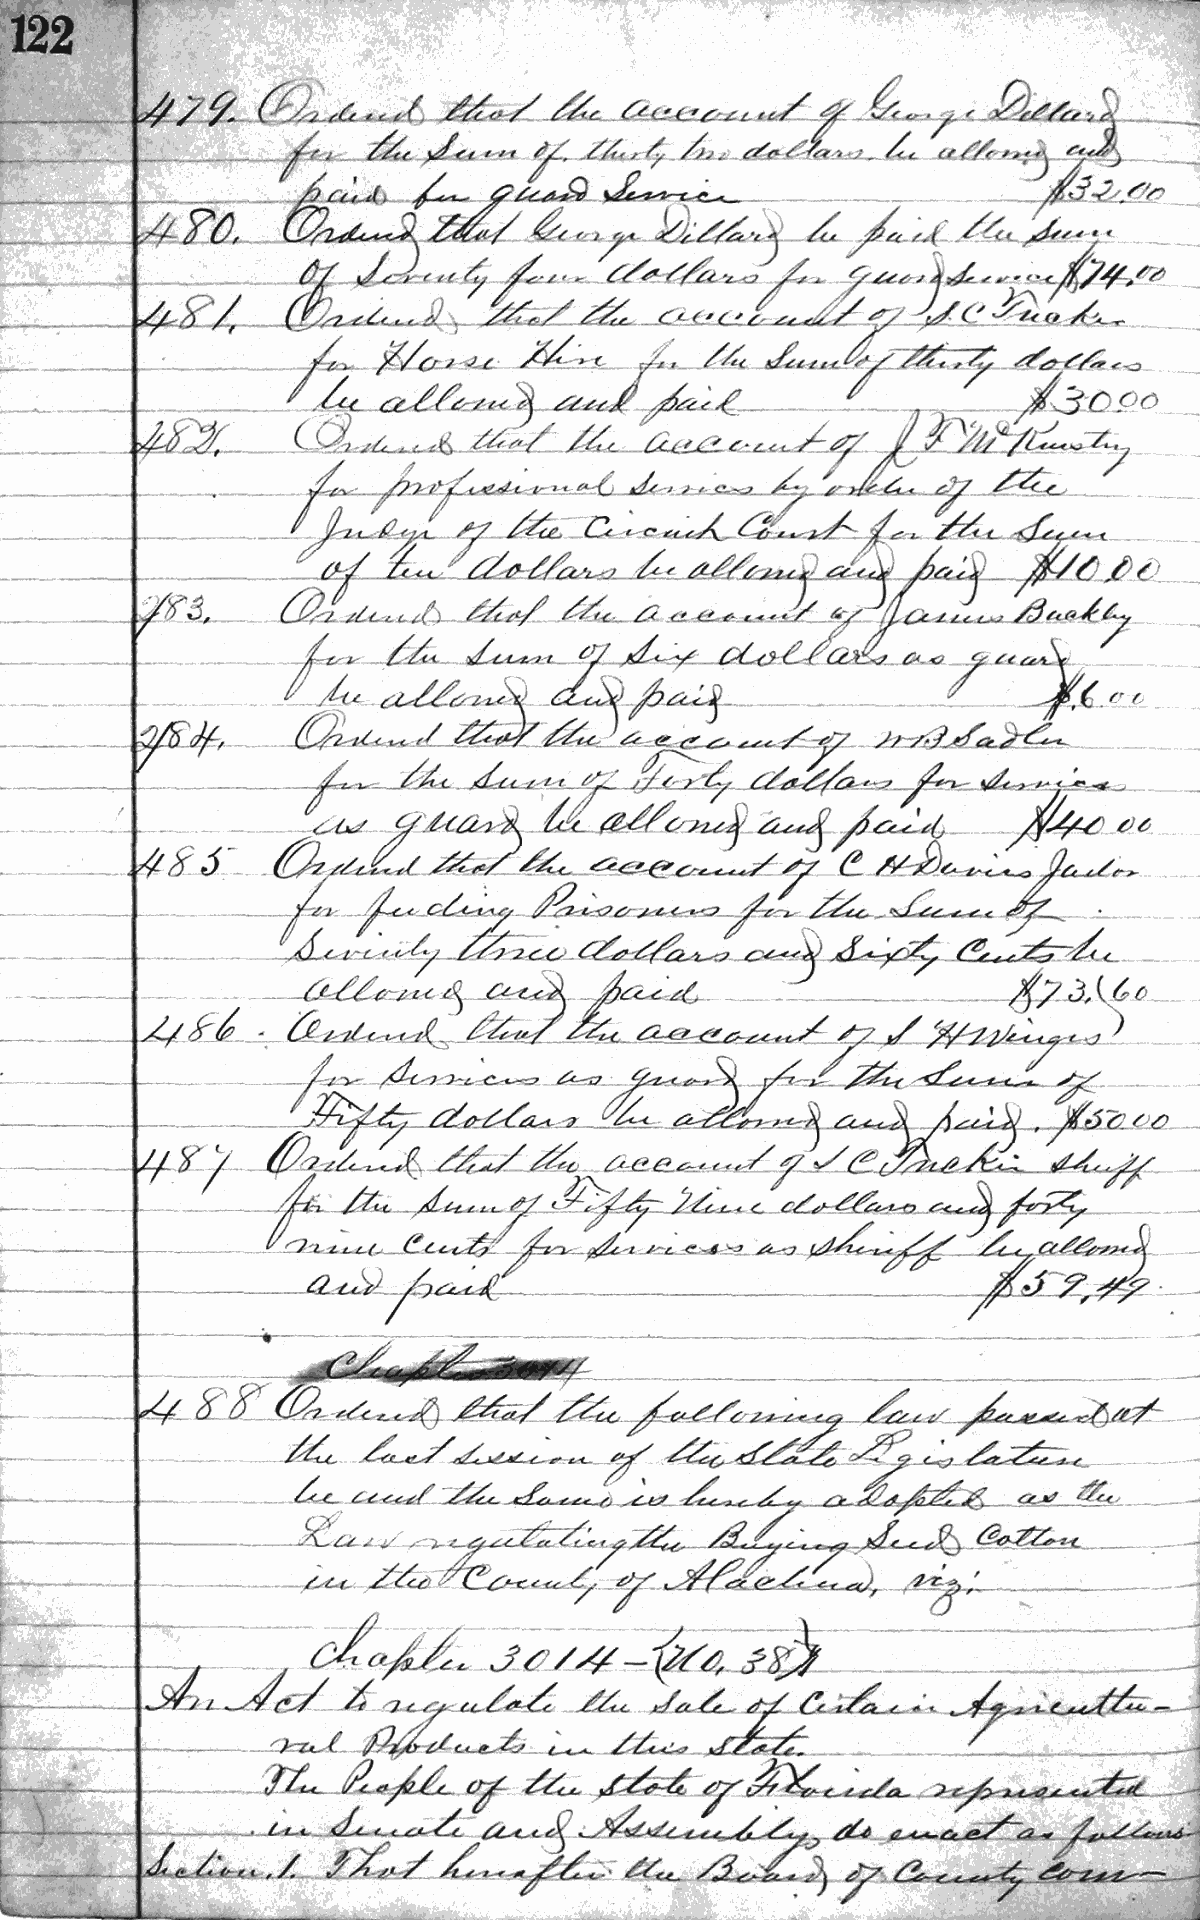 122
479. Ordered that the account of George Dillard
for the Sum of. thirty two dollars. be allowed and
paid for guard Service $32.00
480. Ordered that George Dillard be paid the sum
of Seventy four dollars for guard Service $74.00
481. Ordered that the account of S. C Tucker
for Horse Hire for the Sum of thirty dollars
be allowed and paid $3000
482. Ordered that the account of J F McKinstry
for professional services by order of the
Judge of the Circuit Court for the Sum
of ten dollars be allowed and paid $1000
483. Ordered that the account of James Buckley
for the sum of Six dollars as guard
be allowed and paid $6 00
484. Ordered that the account of W B Sadler
for the sum of Forty dollars for service
as guard be allowed and paid $40 00
485 Ordered that the account of C H Davies Jailor
for feeding Prisoners for the Sum of
Seventy three dollars and Sixty Cents be
allowed and paid $73.60
486. Ordered that the account of S H Winges
for services as guard for the Sum of
Fifty dollars be allowed and paid. $5000
487 Ordered that the account of S C Tucker sheriff
for the sum of Fifty Nine dollars and forty
nine Cents for services as sheriff be allowed
and paid $59.49
Chapter 3014
488 Ordered that the following law passed at
the last session of the State Legislature
be and the Same is hereby adopted as the
Law regulating the Buying Seed Cotton
in the County of Alachua, viz:
Chapter 3014 - (No. 38)
An Act to regulate the Sale of Certain Agricultu-
ral Products in this State.
The People of the State of Florida represented
in Senate and Assembly, do enact as follows
Section. 1. That hereafter the Board of County com-